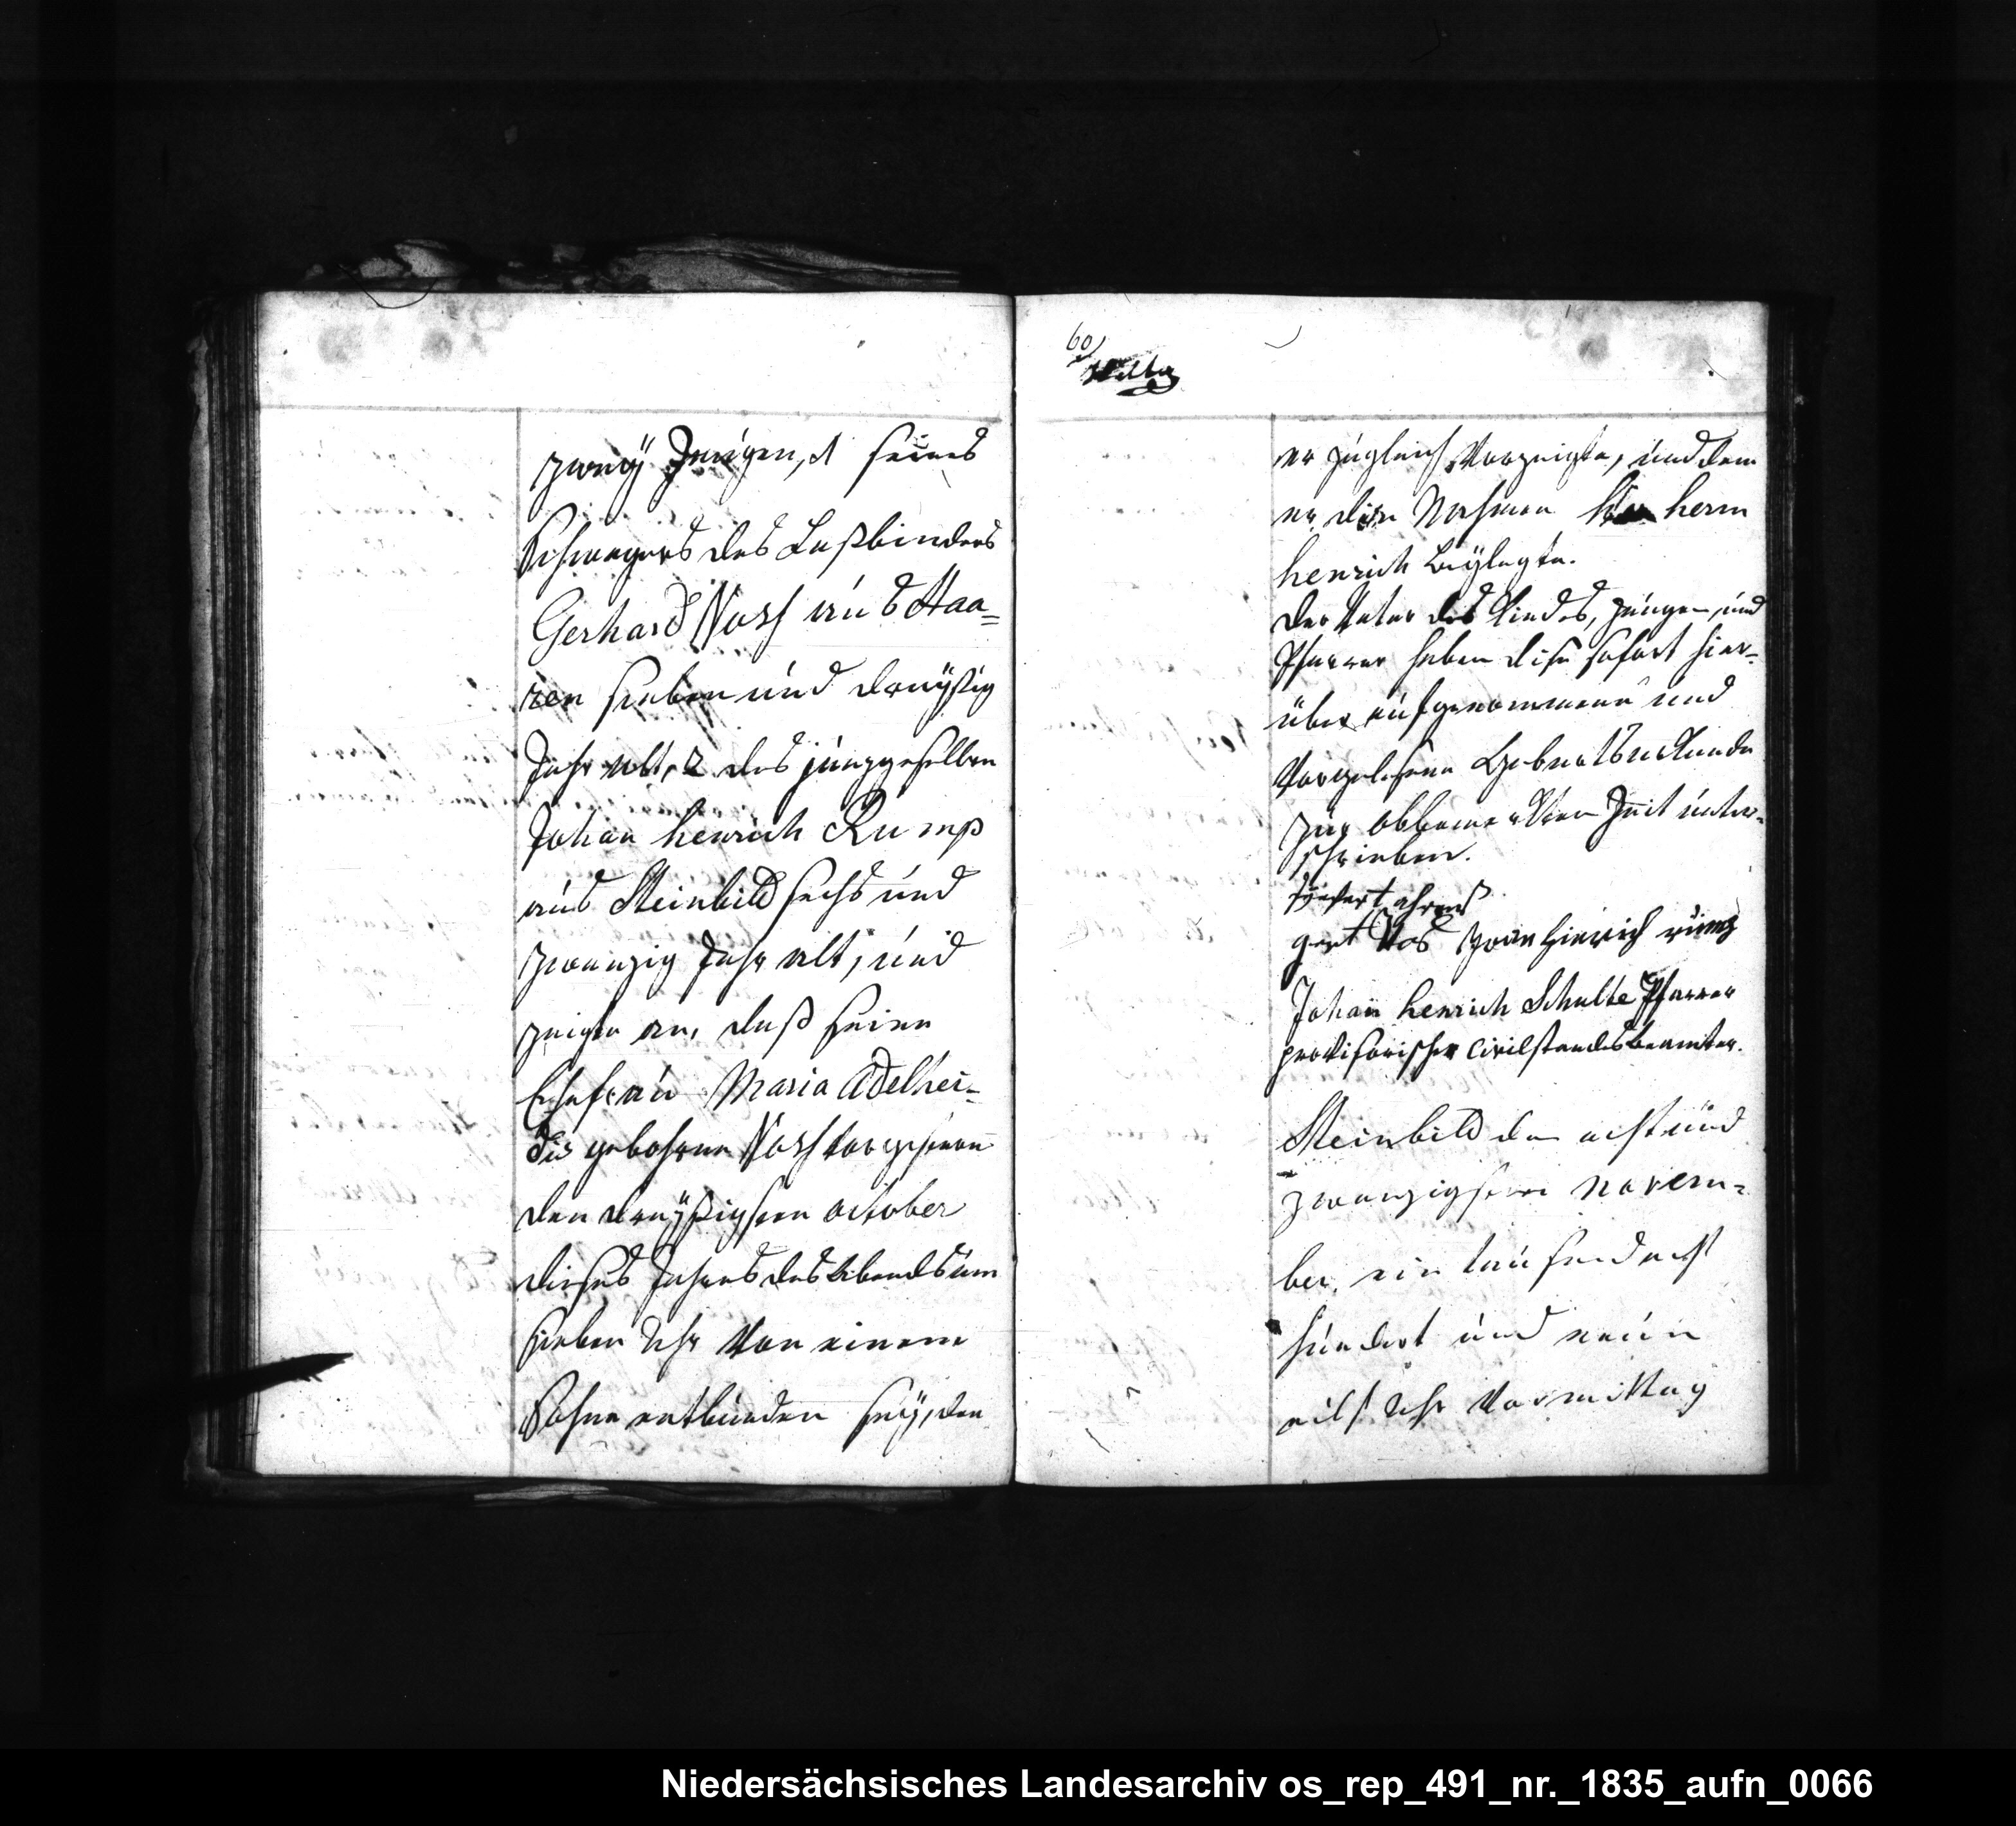 zweÿ Zeugen, 1 seines
Schwagers des Faßbinders
Gerhard Vosh aus Haa-
ren sieben und dreyßig
Jahr alt, 2 des junggesellen
Johan henrich Rump
aus Steinbild sechs und
zwanzig Jahr alt, und
zeigte an, daß seine
Ehefrau Maria Adelhei-
dis gebohrne Vosh vorgestern
den dreyßigsten october
dieses Jahres des Abends um
sieben Uhr von einem
Sohne entbunden seÿ, den
60
er zugleich Vorzeigte, und dem
er den Nahmen herm
henrich beÿlegte.
der Vater des Kindes, zeugen und
Pfarrer haben diese sofort hier-
über aufgenommene und
Vorgelesene Geburtsurkunde
zur obbemerkten Zeit unter-
schrieben.
ahrens
gert Vos Joan Hinrich rump
Johan henrich Schulte Pfarrer
provisorischer Civilstandsbeamter.
Steinbild den acht und
zwanzigsten novem-
ber, ein tausend acht
hundert und neun
eilf Uhr Vormittag
Niedersächsisches Landesarchiv os_rep_491_nr._1835_aufn_0066